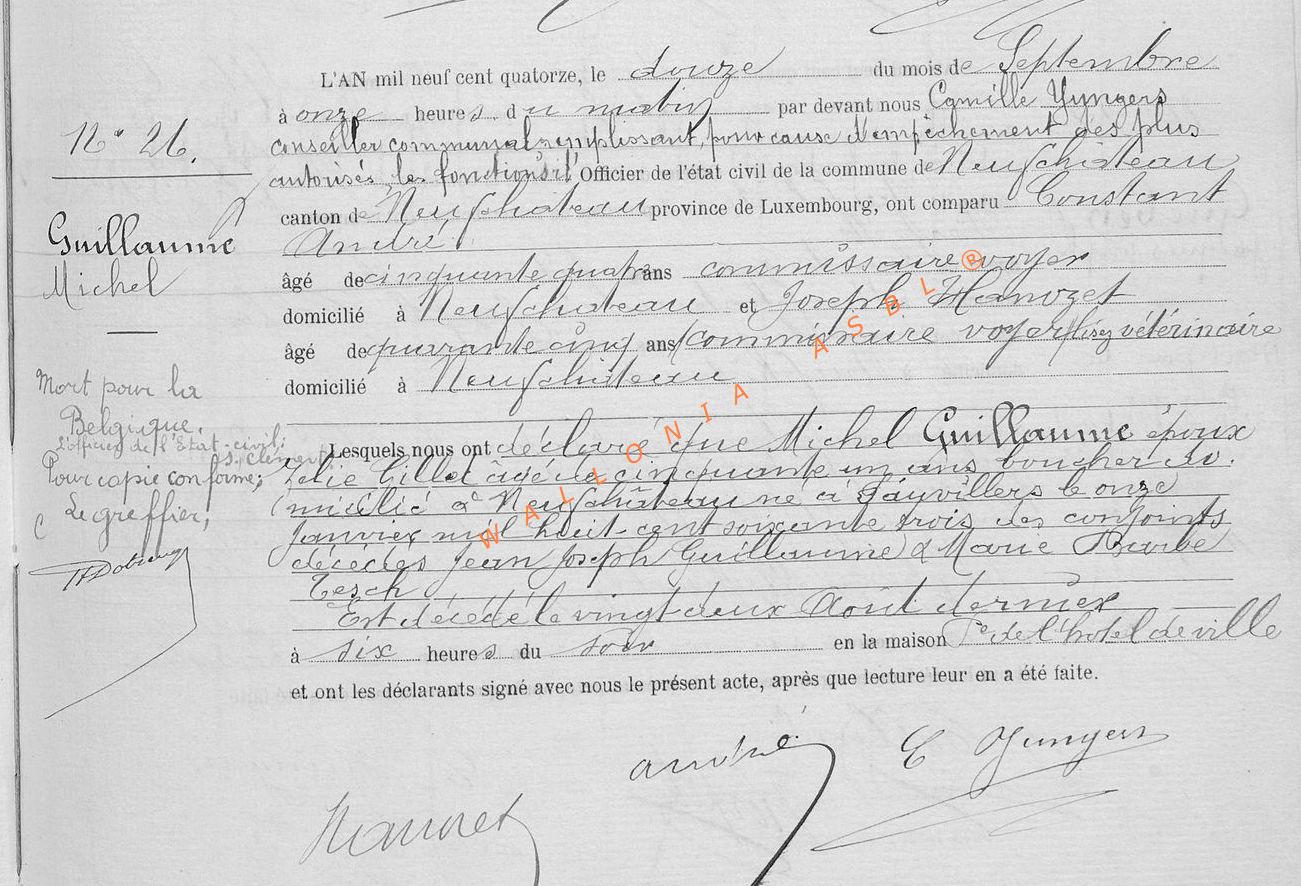 L'AN mil neuf cent quatorze, le douze du mois de Septembre
à onze heures du matin par devant nous Camille Yungers
conseiller communal remplissant, pour cause d'empêchement des plus
autorisés, les fonctions d' Officier de l'état civil de la commune de Neufchâteau
canton de Neufchateau province de Luxembourg, ont comparu Constant
André
âgé de cinquante quatre ans commissaire voyer
domicilié à Neufchateau et Joseph Hanozet
âgé de quarante cinq ans (commissaire voyer) lisez vétérinaire
domicilié à Neufchâteau
Lesquels nous ont déclaré que Michel Guillaume époux
Zélie Gillet âgé de cinquante un ans boucher do-
micilié à Neufchâteau né à Fauvillers le onze
Janvier mil huit-cent soixante trois des conjoints
décédés Jean Joseph Guillaume & Marie Barbe
Tesch
Est décédé le vingt-deux Août dernier
à six heures du soir en la maison de l'hotel de ville
et ont les déclarants signé avec nous le présent acte, après que lecture leur en a été faite.
André C Yungers
Hanozet
N° 26.
Guillaume
Michel
Mort pour la
Belgique.
L'officier de l'Etat-civil;
(s) Clément
Pour copie conforme;
Le greffier,
WALLONIA ASBL ®